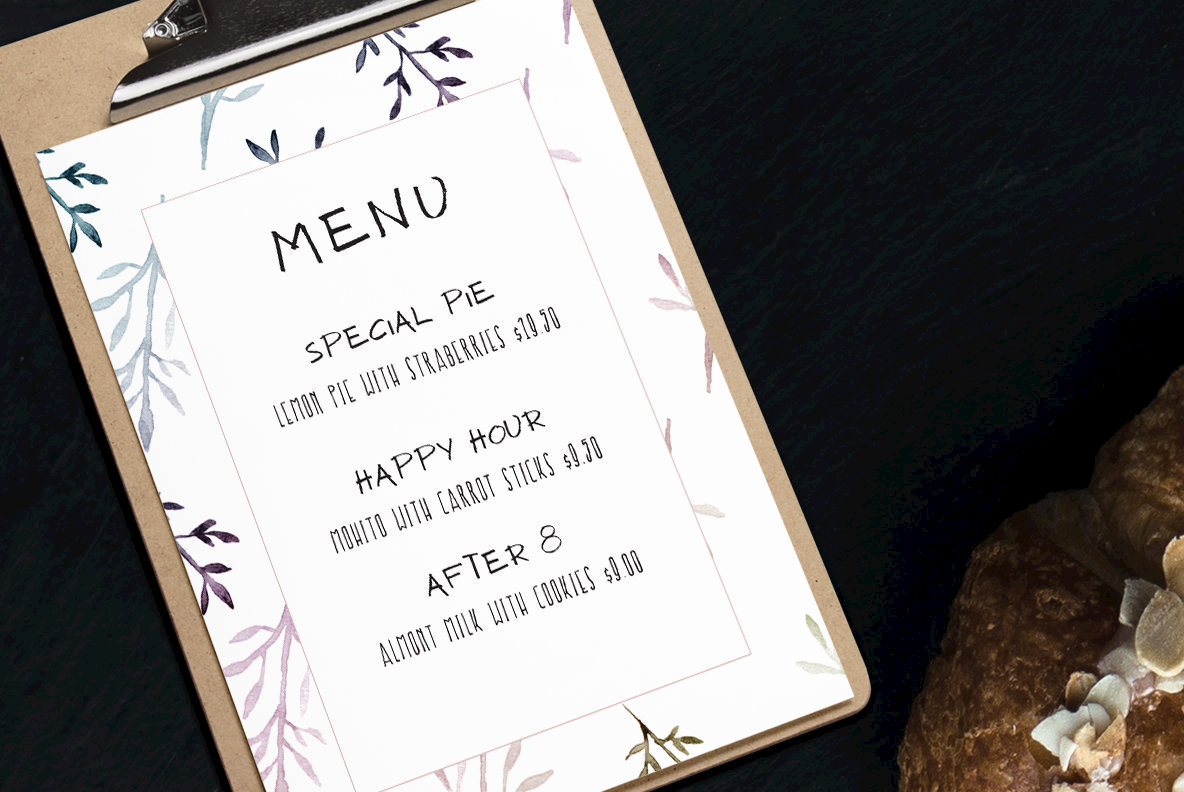 MENU
SPECIAL PiE
LEMON PIE WITH STRABERRIES $19.50
HAPPY HOUR
MOHITO WITH CARROT STICKS $9.50
AFTER 8
ALMONT MILK WITH COOKIES $9.00